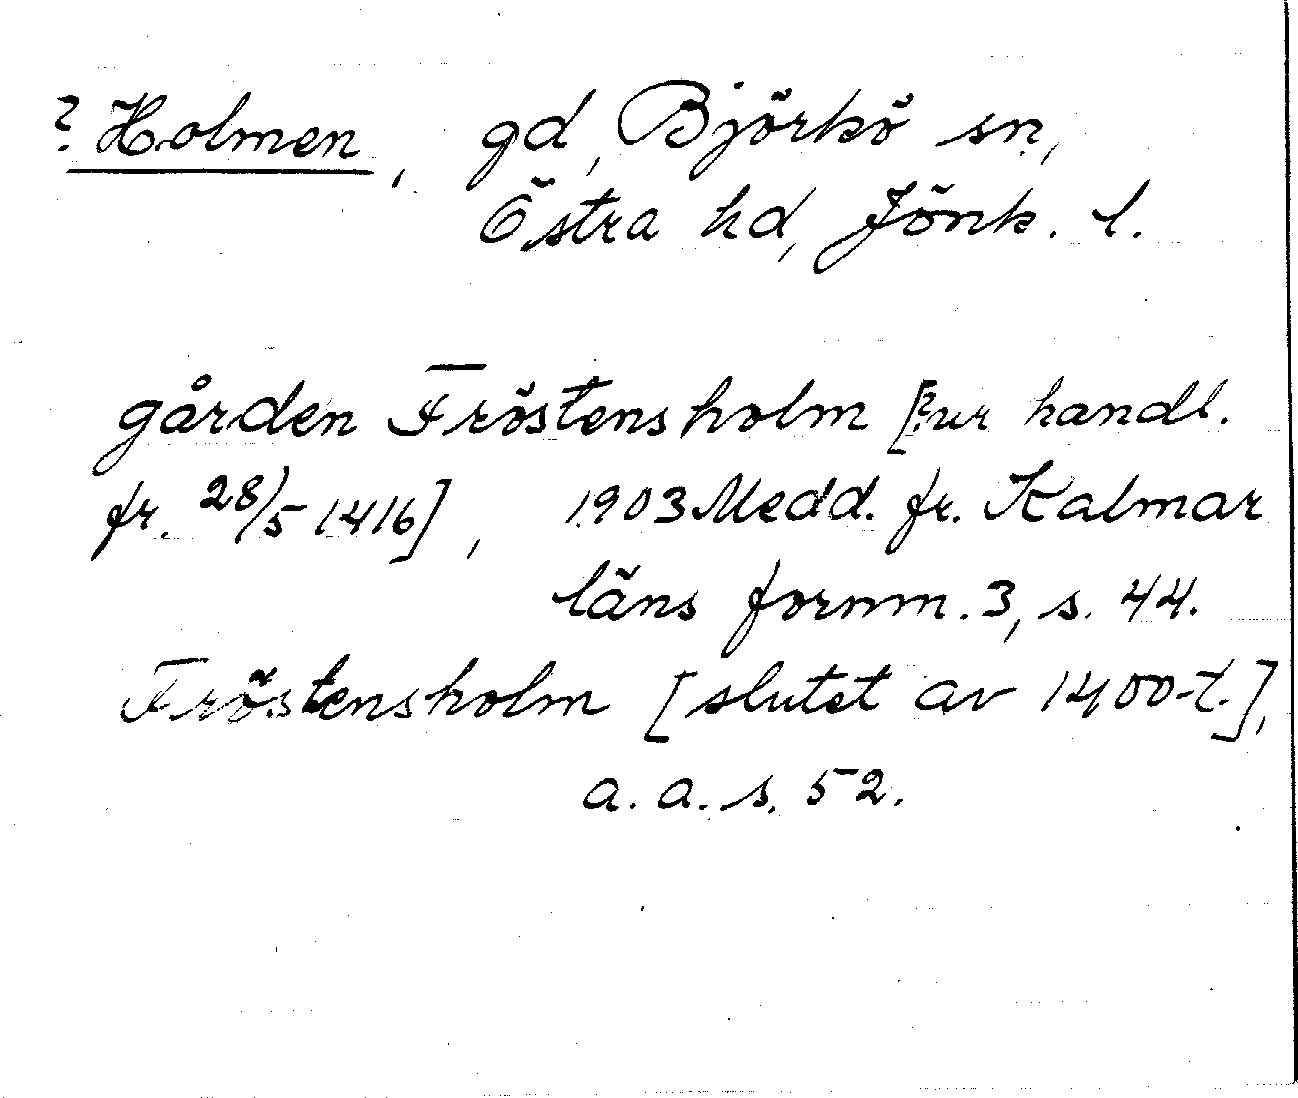 ? Holmen, gd, Björkö sn,
Östra hd, Jönk. l.
gården Fröstensholm [?ur handl.
fr. 28/5 1416], 1903 Medd. fr. Kalmar
läns fornm. 3, s. 44.
Fröstensholm [slutet av 1400-t.],
a. a. s. 52.